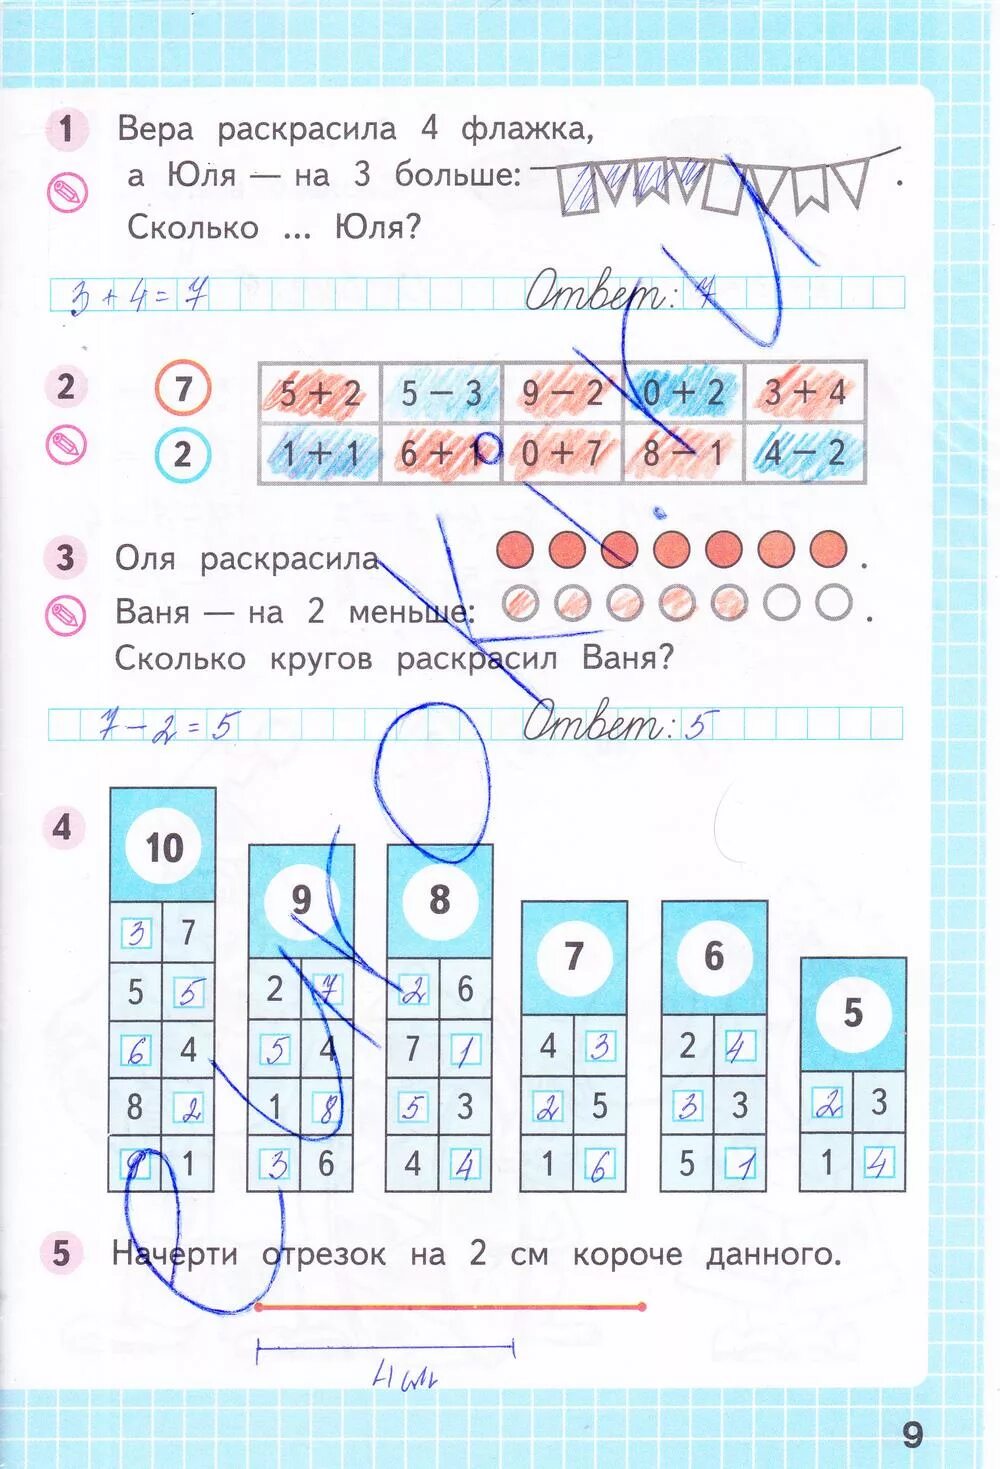 1 Вера раскрасила 4 флажка,
а Юля — на 3 больше: .
Сколько ... Юля?
3 + 4 = 7 Ответ: 7
2 7 5 + 2 5 − 3 9 − 2 0 + 2 3 + 4
2 1 + 1 6 + 1 0 + 7 8 − 1 4 − 2
3 Оля раскрасила .
Ваня — на 2 меньше: .
Сколько кругов раскрасил Ваня?
7 − 2 = 5 Ответ: 5
4
10
3 7
5 5
6 4
8 2
9 1
9
2 7
5 4
1 8
3 6
8
2 6
7 1
5 3
4 4
7
4 3
2 5
1 6
6
2 4
3 3
5 1
5
2 3
1 4
5 Начерти отрезок на 2 см короче данного.
4 см
9